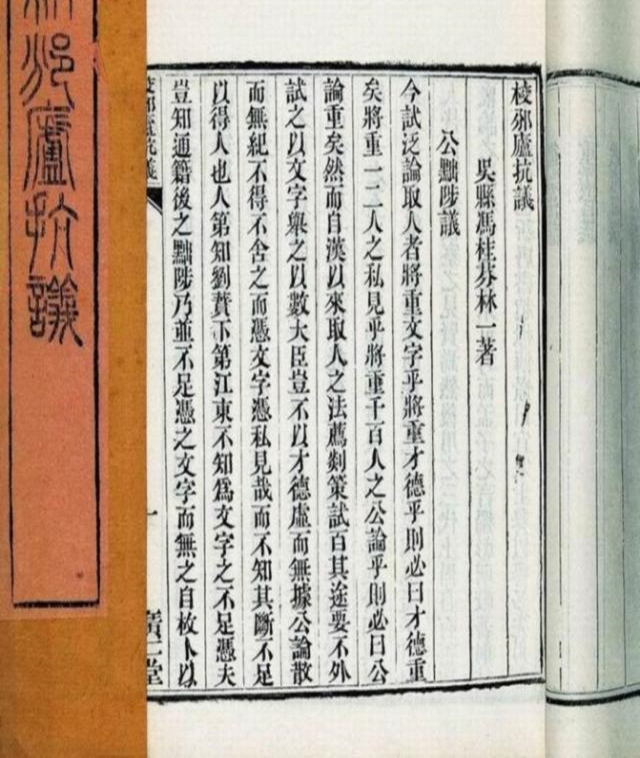 校邠廬抗議
吳縣馮桂芬林一著
公黜陟議
今試泛論取人者將重文字乎將重才德乎則必曰才德重
矣將重一二人之私見乎將重千百人之公論乎則必曰公
論重矣然而自漢以來取人之法薦剡策試百其途要不外
試之以文字舉之以數大臣豈不以才德虛而無據公論散
而無紀不得不舍之而憑文字憑私見哉而不知其斷不足
以得人也人第知劉蕡下第江東不知爲文字之不足憑夫
豈知通籍後之黜陟乃並不足憑之文字而無之自枚卜以
校邠廬抗議
一
廣仁堂
邠廬抗議